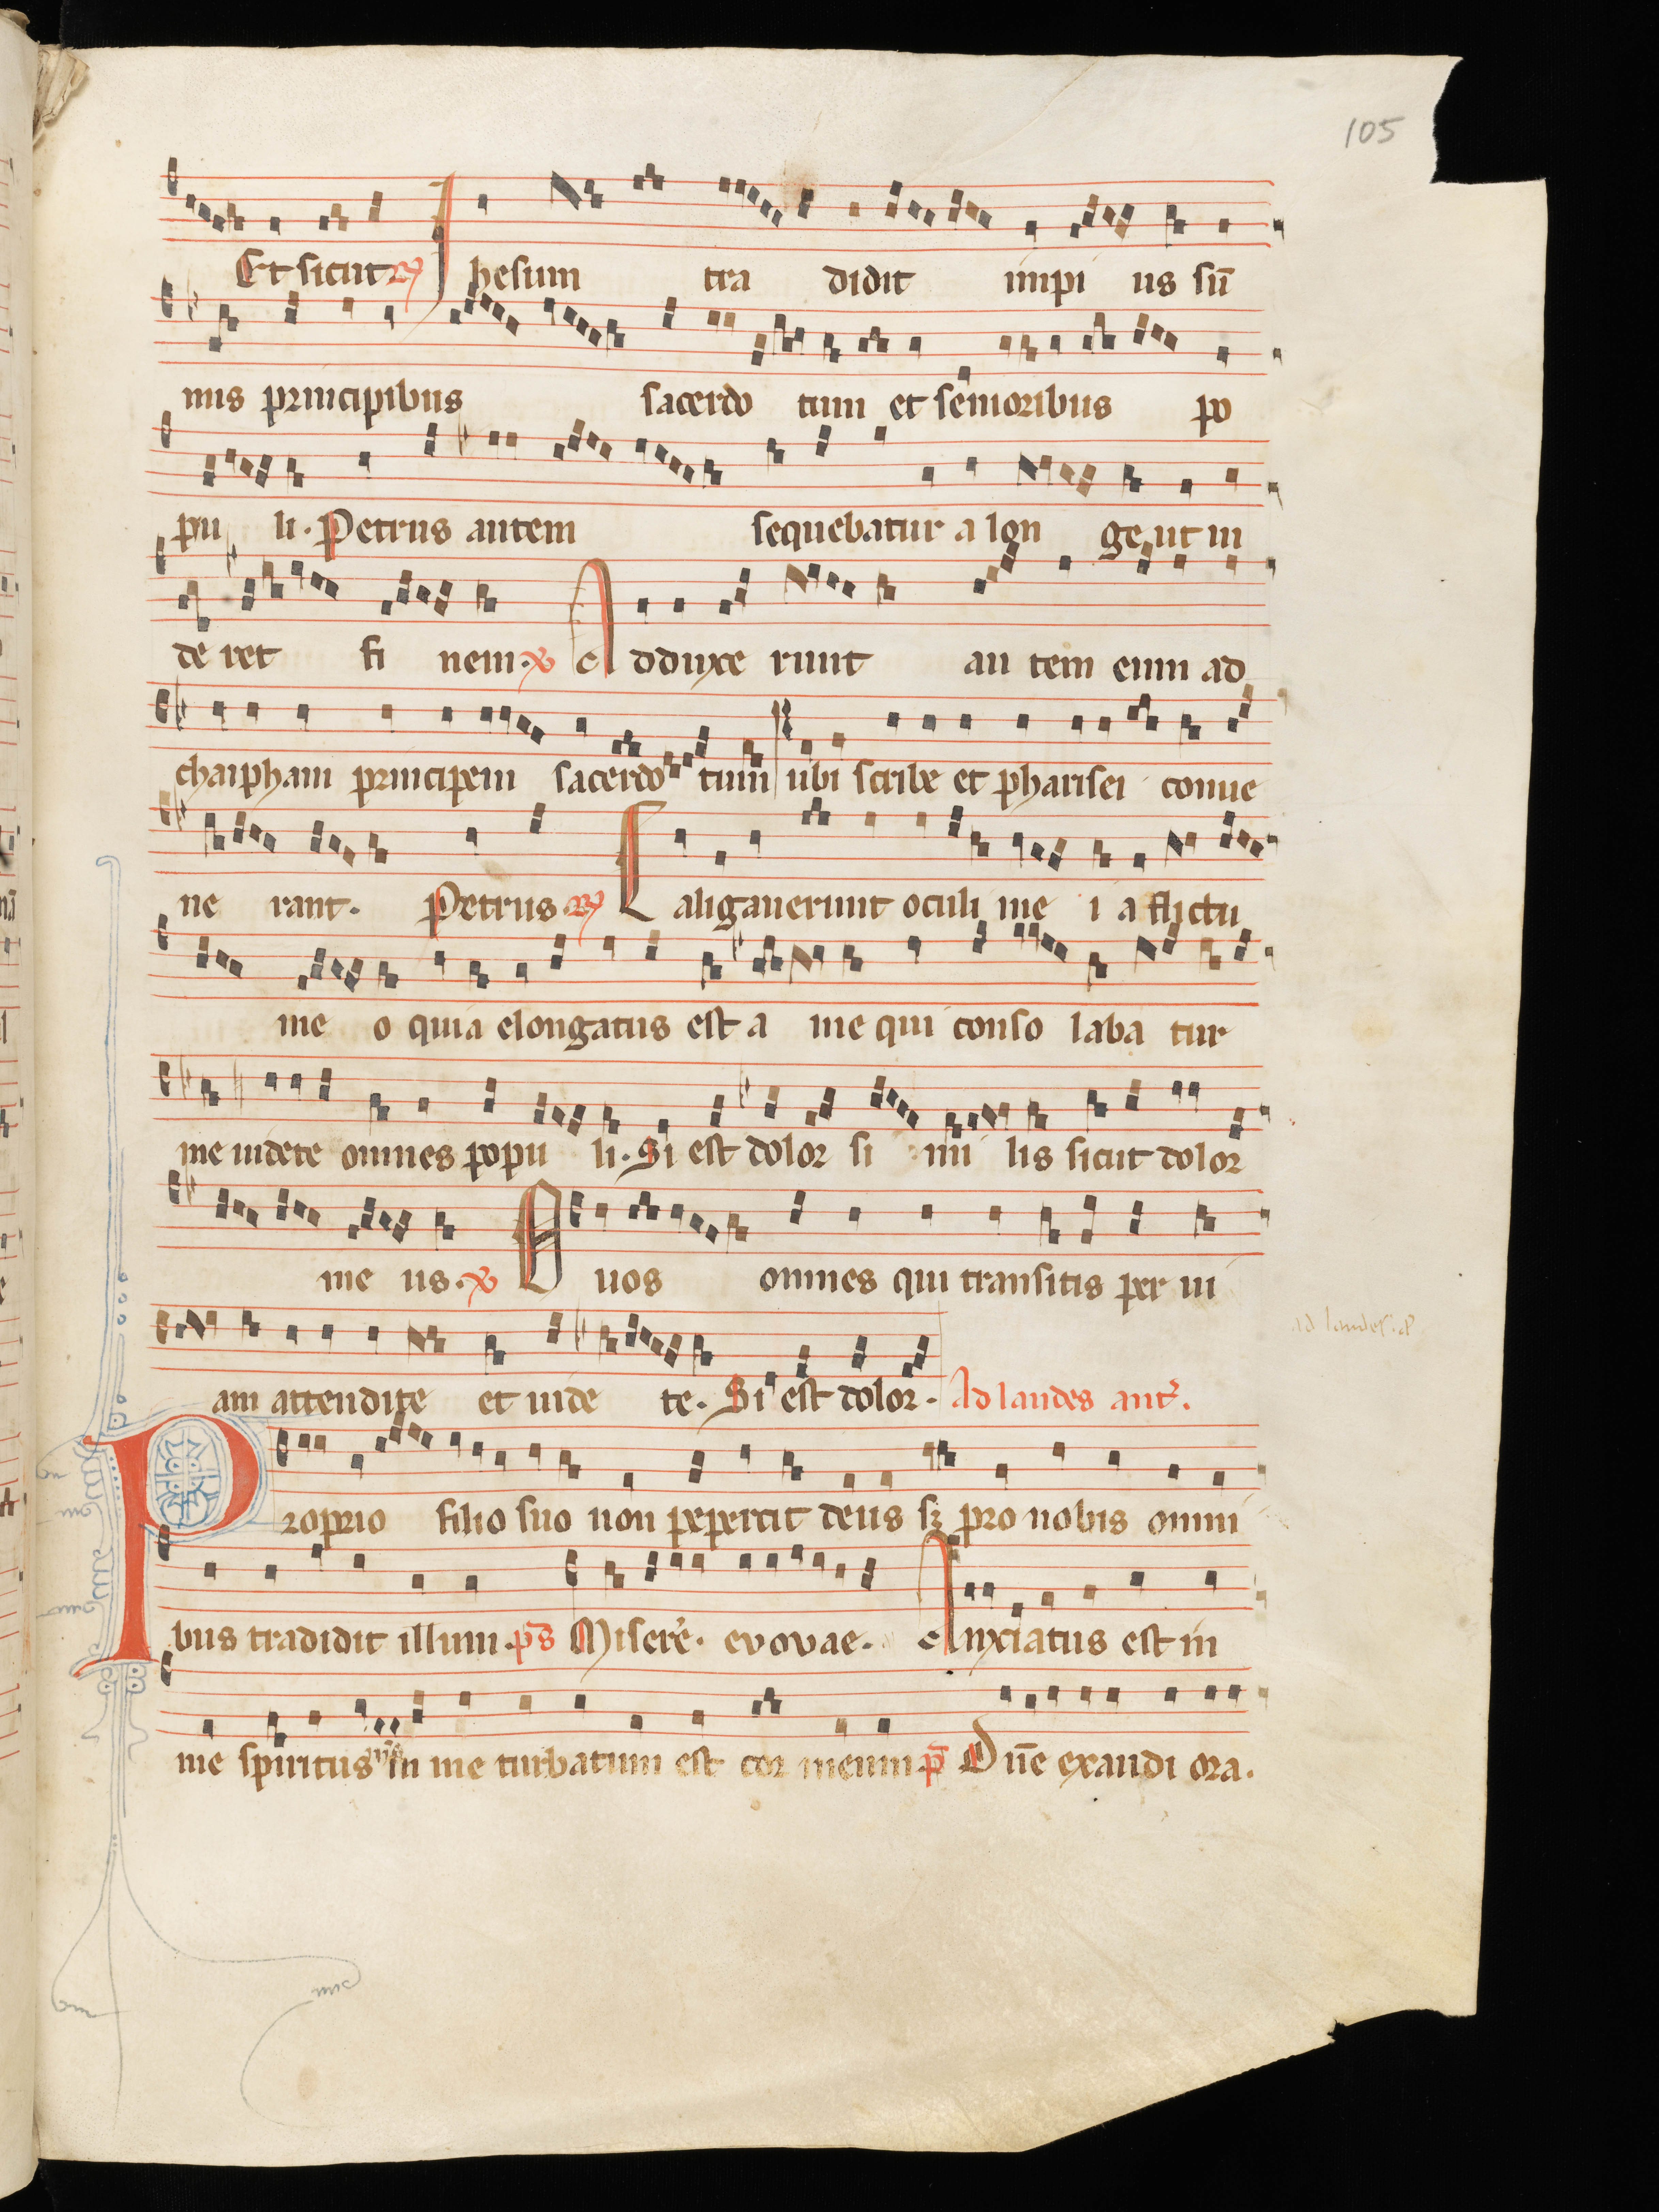 105
Et sicut ℟ Jhesum tra didit impi us sūmis principibus
mis principibus sacerdo tum et senioribus po
pu li. Petrus autem sequebatur a lon ge ut ui
de ret fi nem. ℣ Adduxe runt au tem eum ad
chaipham principem sacerdo tum ubi scribe et pharisei conue
ne rant. Petrus. ℟ Caligauerunt oculi me i a flictu
me o quia elongatus est a me qui conso laba tur
me uidete omnes popu li. Si est dolor si mi lis sicut dolor
me us. ℣ O uos omnes qui transitis per ui
am attendite et uide te. Si est dolor. Ad laudes ant̄.
ad laudes. a
Proprio filio suo non pepercit deus sꝫ pro nobis omni
bus tradidit illum. p̄s Misere. evovae. Anxiatus est in
me spiritus in me turbatum est cor meum. p̄ Dn̄e exaudi ora.